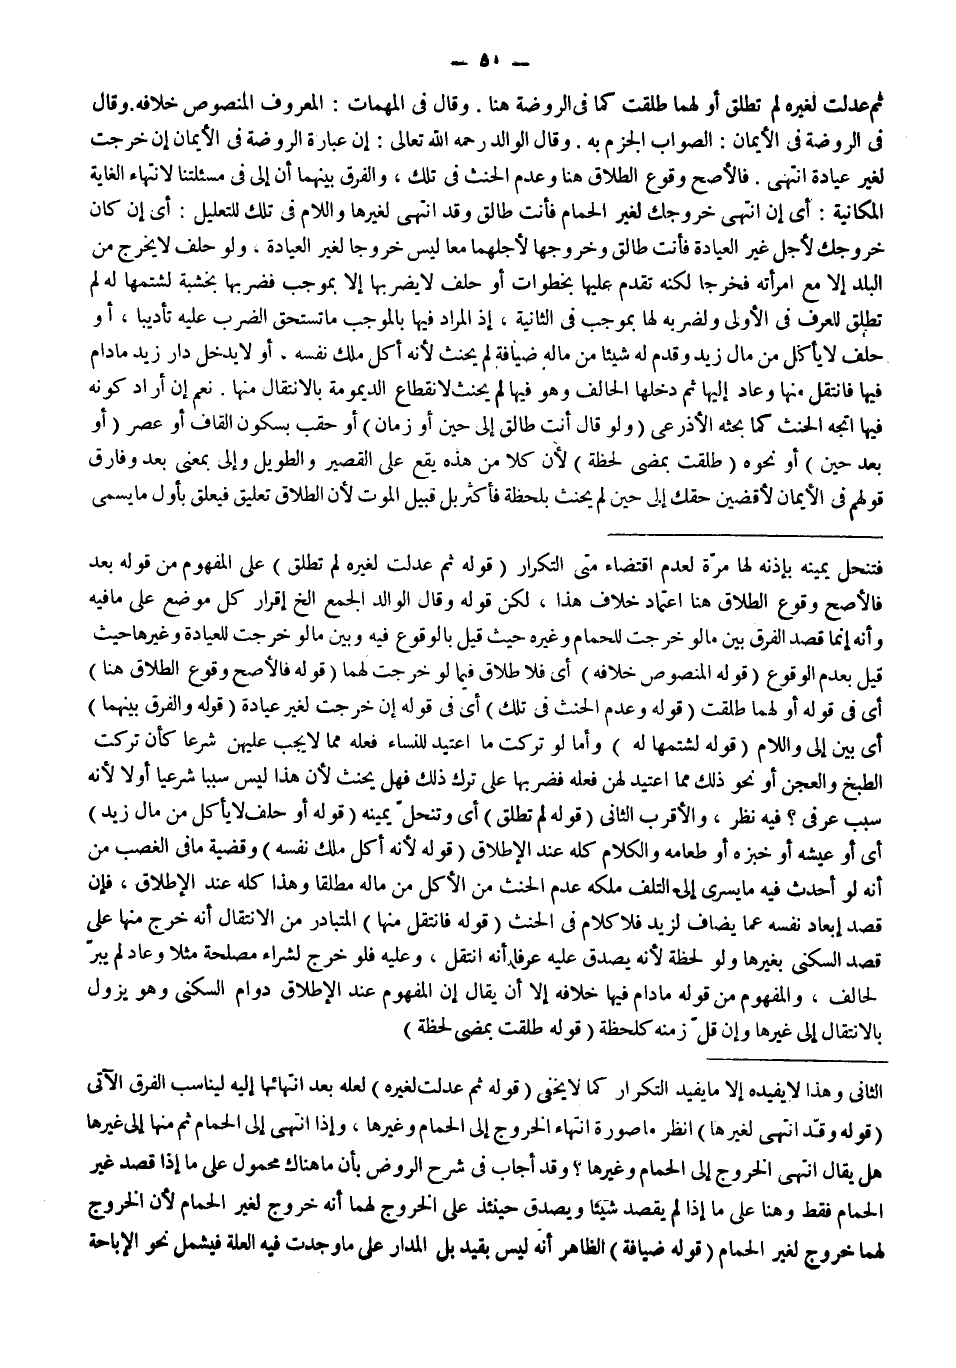 — ٥٠ —
ثم عدلت لغيره لم تطلق أو لهما طلقت كما فى الروضة هنا . وقال فى المهمات : المعروف المنصوص خلافه.وقال
فى الروضة فى الأيمان : الصواب الجزم به . وقال الوالد رحمه الله تعالى : إن عبارة الروضة فى الأيمان إن خرجت
لغير عيادة انتهى . فالأصح وقوع الطلاق هنا وعدم الحنث فى تلك ، والفرق بينهما أن إلى فى مسئلتنا لانتهاء الغاية
المكانية : أى إن انتهى خروجك لغير الحمام فأنت طالق وقد انتهى لغيرها واللام فى تلك للتعليل : أى إن كان
خروجك لأجل غير العيادة فأنت طالق وخروجها لأجلهما معا ليس خروجا لغير العيادة ، ولو حلف لايخرج من
البلد إلا مع امرأته فخرجا لكنه تقدم عليها بخطوات أو حلف لايضربها إلا بموجب فضربها بخشبة لشتمها له لم
تطلق للعرف فى الأولى ولضربه لها بموجب فى الثانية ، إذ المراد فيها بالموجب ماتستحق الضرب عليه تأديبا ، أو
حلف لايأكل من مال زيد وقدم له شيئا من ماله ضيافة لم يحنث لأنه أكل ملك نفسه . أو لايدخل دار زيد مادام
فيها فانتقل منها وعاد إليها ثم دخلها الحالف وهو فيها لم يحنث لانقطاع الديمومة بالانتقال منها . نعم إن أراد كونه
فيها اتجه الحنث كما بحثه الأذرعى ( ولو قال أنت طالق إلى حين أو زمان ) أو حقب بسكون القاف أو عصر ( أو
بعد حين ) أو نحوه ( طلقت بمضى لحظة ) لأن كلا من هذه يقع على القصير والطويل وإلى بمعنى بعد وفارق
قولهم فى الأيمان لأقضين حقك إلى حين لم يحنث بلحظة فأكثر بل قبيل الموت لأن الطلاق تعليق فيعلق بأول مايسمى
فتنحل يمينه بإذنه لها مرّة لعدم اقتضاء متى التكرار ( قوله ثم عدلت لغيره لم تطلق ) على المفهوم من قوله بعد
فالأصح وقوع الطلاق هنا اعتماد خلاف هذا ، لكن قوله وقال الوالد الجمع الخ إقرار كل موضع على مافيه
وأنه إنما قصد الفرق بين مالو خرجت للحمام وغيره حيث قيل بالوقوع فيه وبين مالو خرجت للعيادة وغيرها حيث
قيل بعدم الوقوع ( قوله المنصوص خلافه ) أى فلا طلاق فيما لو خرجت لهما ( قوله فالأصح وقوع الطلاق هنا )
أى فى قوله أو لهما طلقت ( قوله وعدم الحنث فى تلك ) أى فى قوله إن خرجت لغير عيادة ( قوله والفرق بينهما )
أى بين إلى واللام ( قوله لشتمها له ) وأما لو تركت ما اعتيد للنساء فعله مما لايجب عليهن شرعا كأن تركت
الطبخ والعجن أو نحو ذلك مما اعتيد لهن فعله فضربها على ترك ذلك فهل يحنث لأن هذا ليس سببا شرعيا أولا لأنه
سبب عرفى ؟ فيه نظر ، والأقرب الثانى ( قوله لم تطلق ) أى وتنحلّ يمينه ( قوله أو حلف لايأكل من مال زيد )
أى أو عيشه أو خبزه أو طعامه والكلام كله عند الإطلاق ( قوله لأنه أكل ملك نفسه ) وقضية مافى الغصب من
أنه لو أحدث فيه مايسرى إلى التلف ملكه عدم الحنث من الأكل من ماله مطلقا وهذا كله عند الإطلاق ، فإن
قصد إبعاد نفسه عما يضاف لزيد فلا كلام فى الحنث ( قوله فانتقل منها ) المتبادر من الانتقال أنه خرج منها على
قصد السكنى بغيرها ولو لحظة لأنه يصدق عليه عرفا أنه انتقل ، وعليه فلو خرج لشراء مصلحة مثلا وعاد لم يبرّ
لحالف ، والمفهوم من قوله مادام فيها خلافه إلا أن يقال إن المفهوم عند الإطلاق دوام السكنى وهو يزول
بالانتقال إلى غيرها وإن قلّ زمنه كلحظة ( قوله طلقت بمضى لحظة )
الثانى وهذا لايفيده إلا مايفيد التكرار كما لايخفى ( قوله ثم عدلت لغيره ) لعله بعد انتهائها إليه ليناسب الفرق الآتى
( قوله وقد انتهى لغيرها ) انظر ماصورة انتهاء الخروج إلى الحمام وغيرها ، وإذا انتهى إلى الحمام ثم منها إلى غيرها
هل يقال انتهى الخروج إلى الحمام وغيرها ؟ وقد أجاب فى شرح الروض بأن ماهناك محمول على ما إذا قصد غير
الحمام فقط وهنا على ما إذا لم يقصد شيئا ويصدق حينئذ على الخروج لهما أنه خروج لغير الحمام لأن الخروج
لهما خروج لغير الحمام ( قوله ضيافة ) الظاهر أنه ليس بقيد بل المدار على ماوجدت فيه العلة فيشمل نحو الإباحة